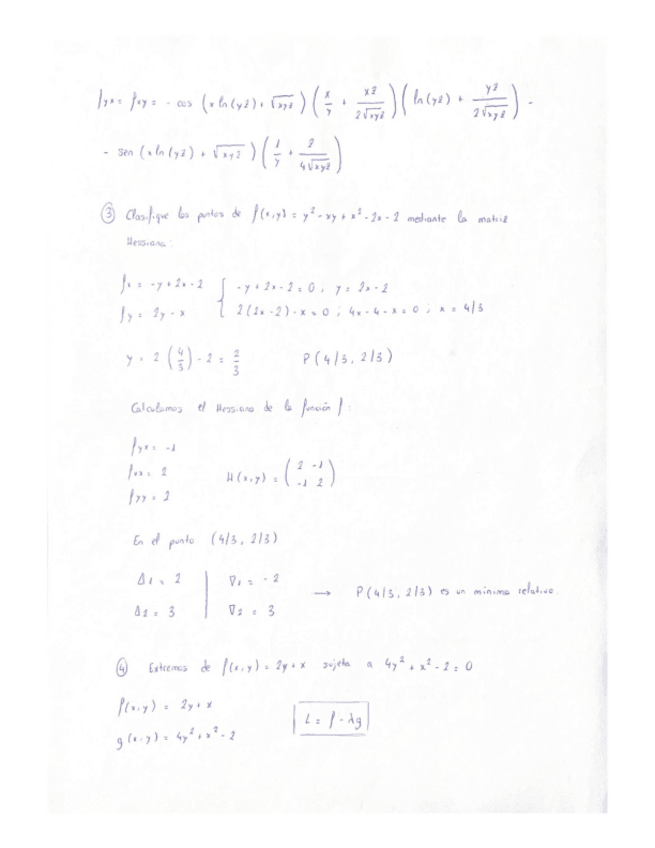 fyx = fxy = - cos (x ln(yz) + √xyz) (x/y + xz/2√xyz) (ln(yz) + yz/2√xyz) -
- sen (x ln(yz) + √xyz) (1/y + z/4√xyz)
③ Clasifique los puntos de f(x,y) = y² - xy + x² - 2x - 2 mediante la matriz
Hessiana:
fx = -y + 2x - 2 { -y + 2x - 2 = 0 ; y = 2x - 2
fy = 2y - x 2(2x - 2) - x = 0 ; 4x - 4 - x = 0 ; x = 4/3
y = 2 (4/3) - 2 = 2/3 P(4/3, 2/3)
Calculamos el Hessiano de la función f:
fyx = -1
fxx = 2
H(x,y) = (2 -1
-1 2)
fyy = 2
En el punto (4/3, 2/3)
Δ1 = 2 | ∇1 = -2
→ P(4/3, 2/3) es un mínimo relativo.
Δ2 = 3 | ∇2 = 3
④ Extremos de f(x,y) = 2y + x sujeta a 4y² + x² - 2 = 0
f(x,y) = 2y + x
L = f - λg
g(x,y) = 4y² + x² - 2